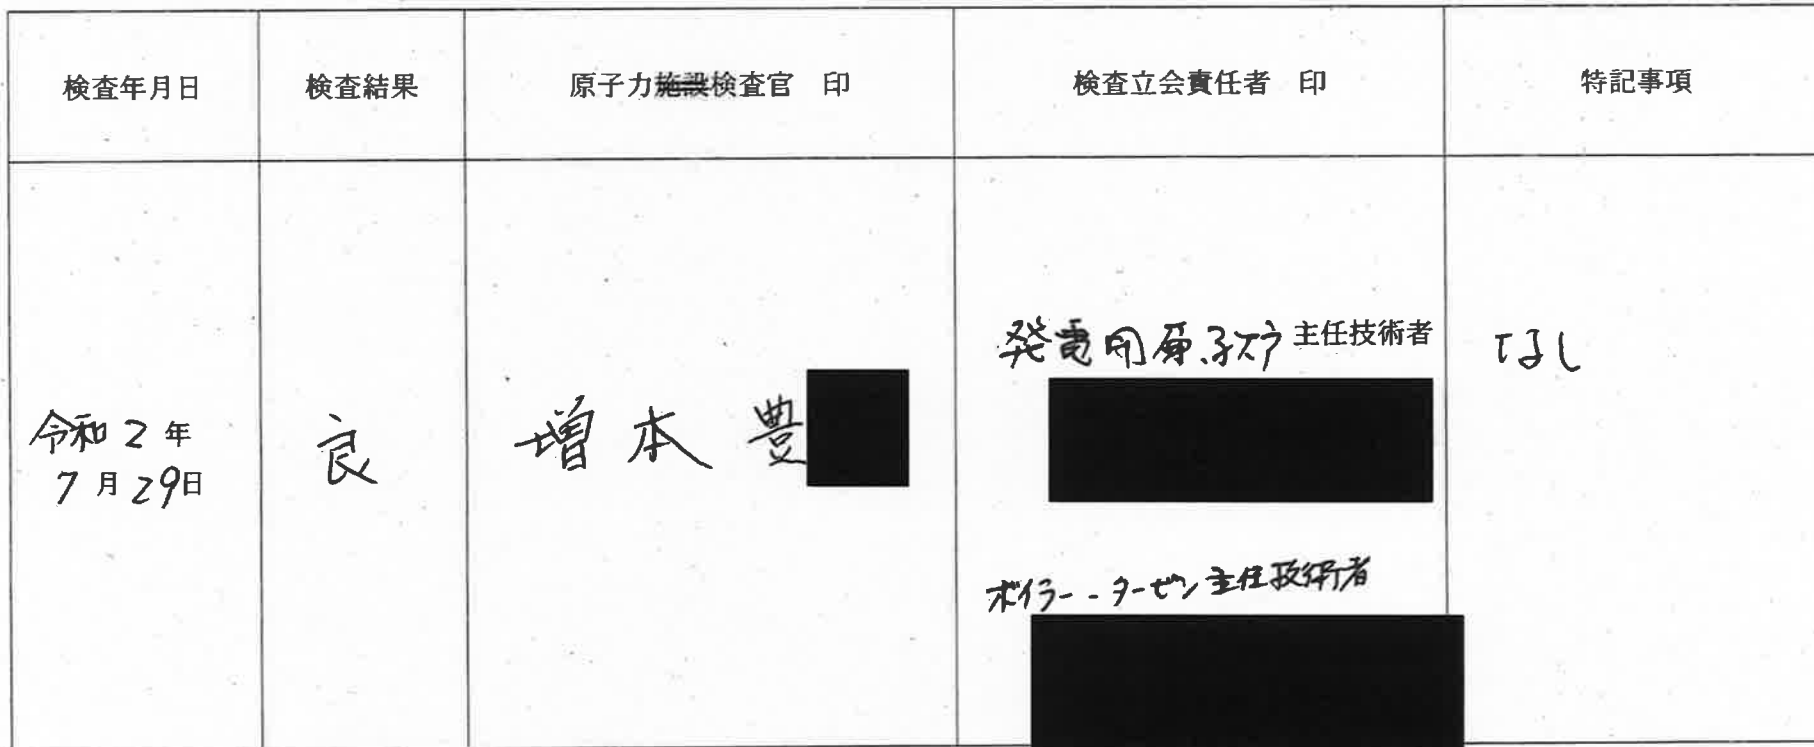 検査年月日
検査結果
原子力施設検査官 印
検査立会責任者 印
特記事項
令和2年
7月29日
良
増本 豊
発電用原子炉主任技術者
ボイラー・タービン主任技術者
なし